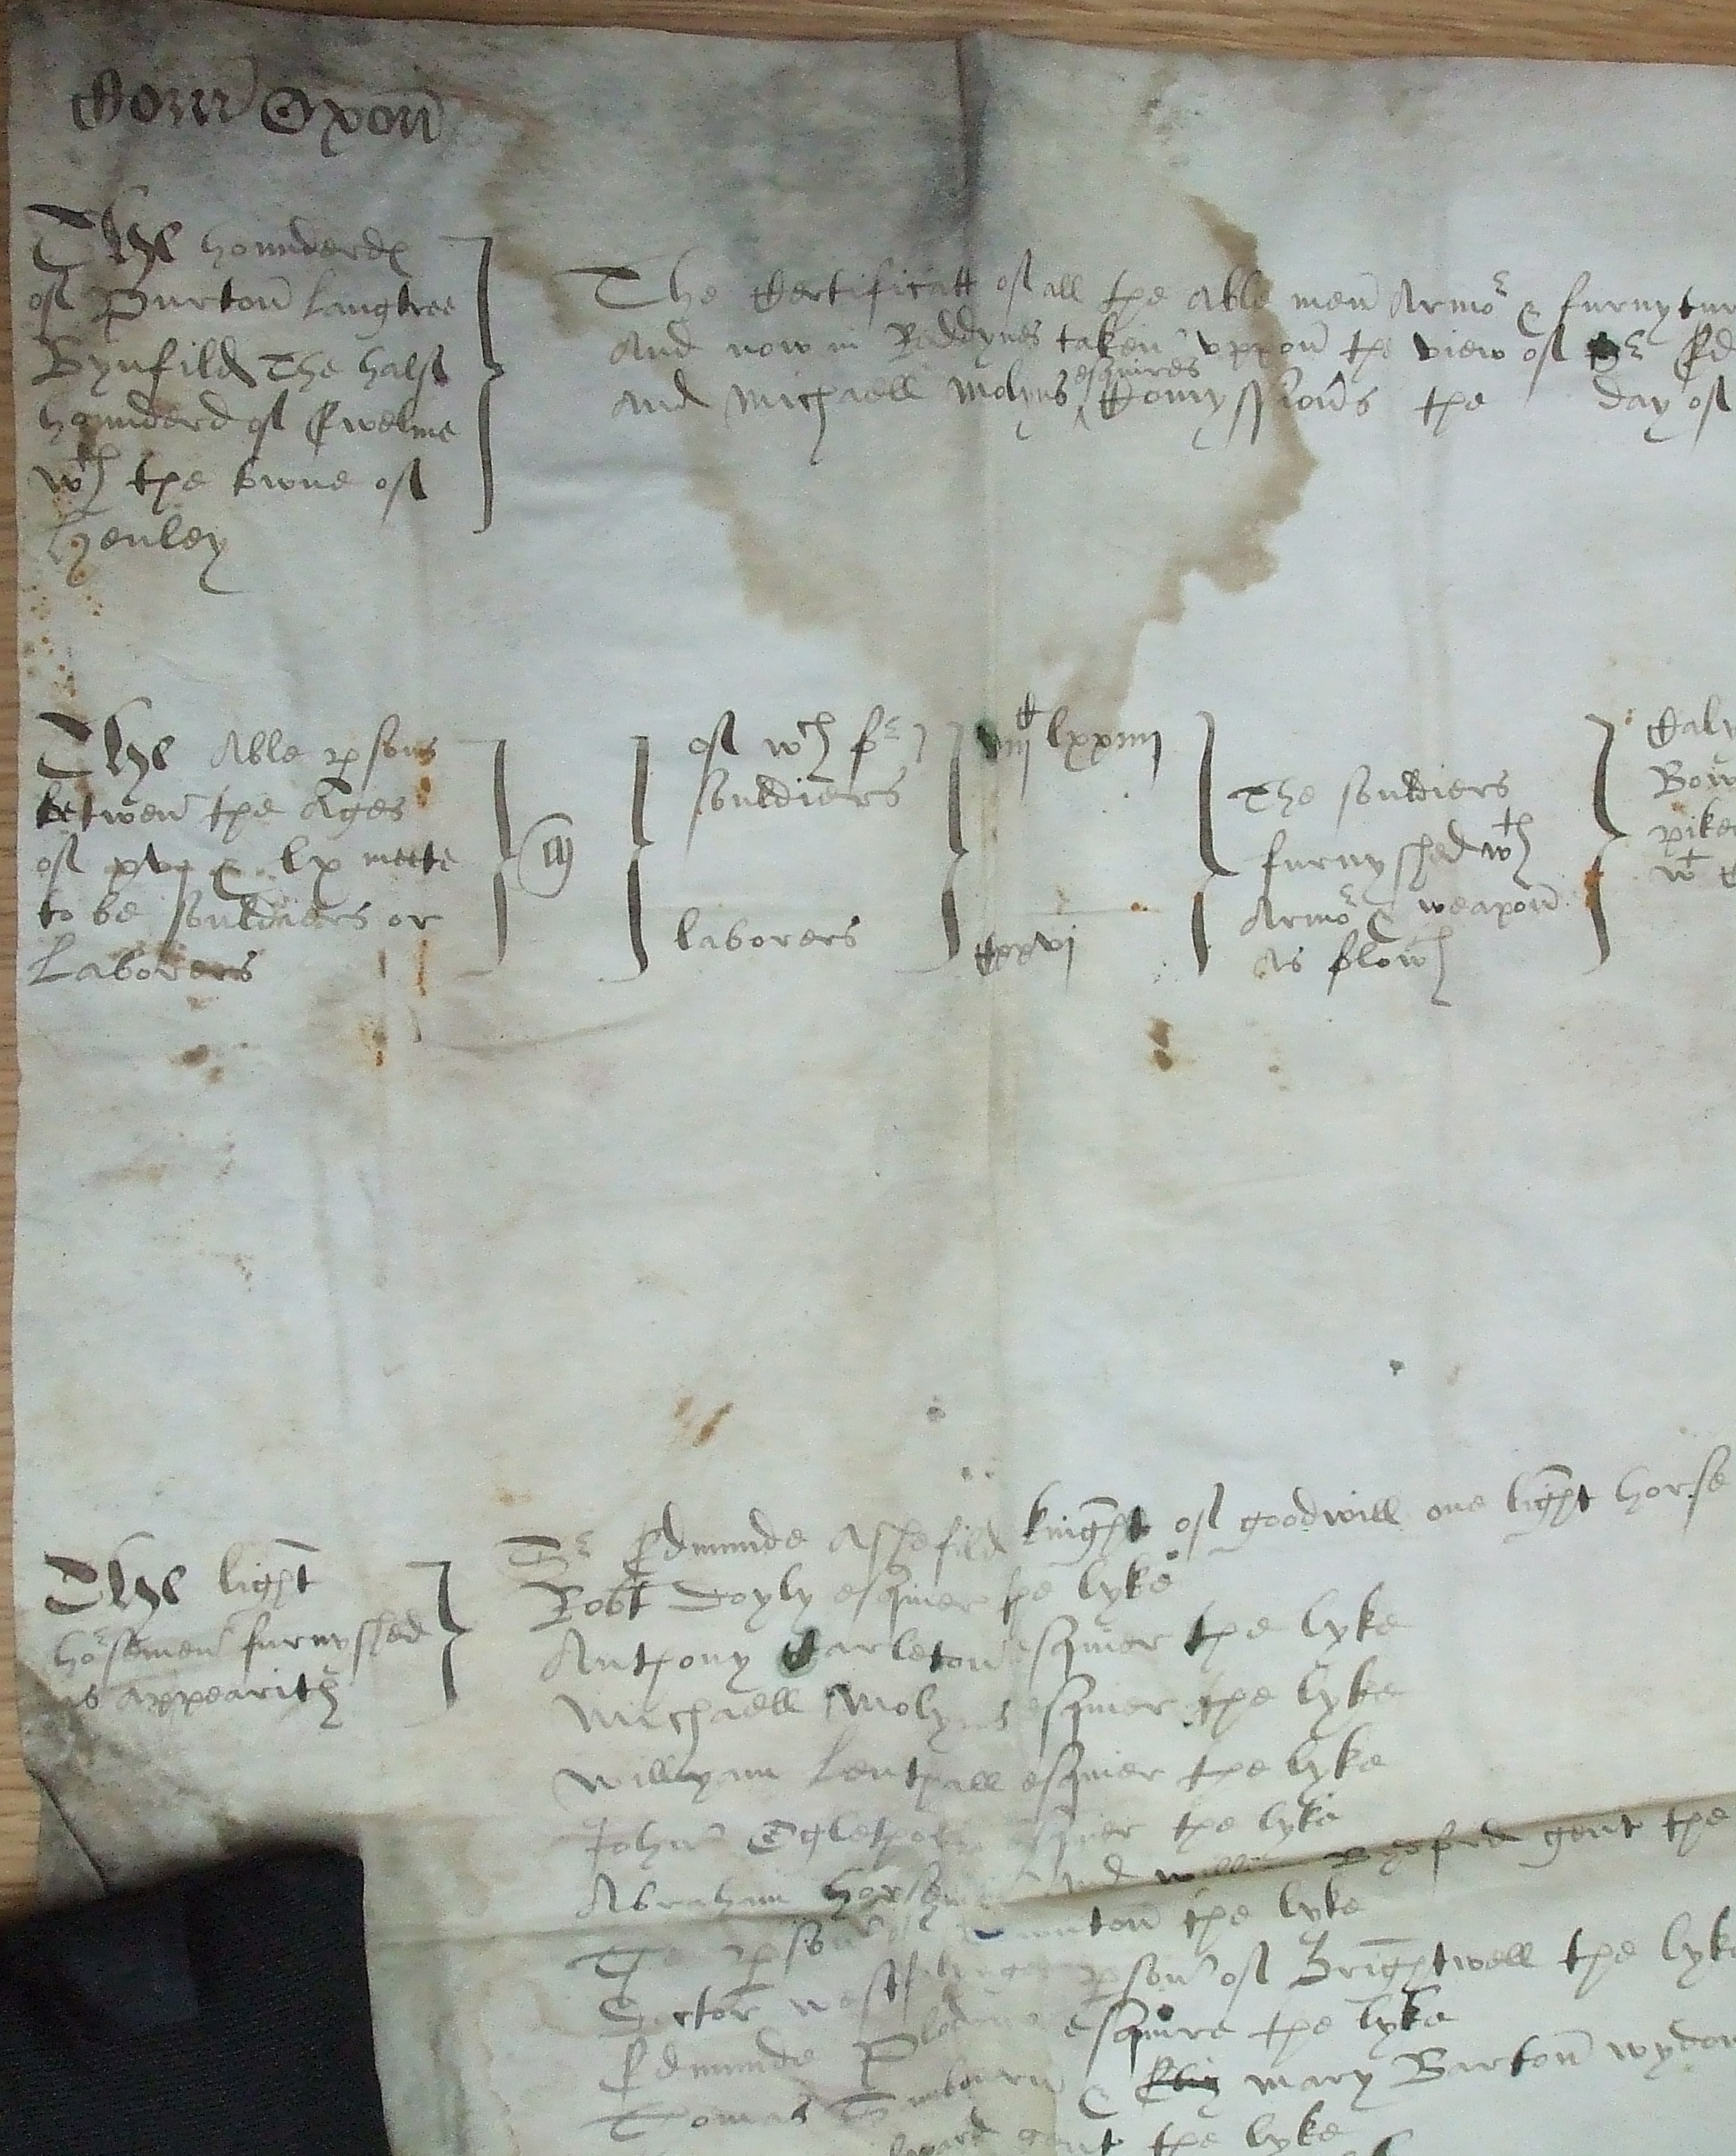 Com Oxon
The hounderds
of Purton Langtree
Bynfild The half
hounderd of Ewelme
wth the towne of
Henley
The Certificatt of all the able men Armor & furnytur
And now in Reddynes taken uppon the view of Sr Ed
and Michaell Molyns esquires Comyssioners the day of
The Able psons
betwen the Ages
of xvj & lx meete
to be souldiers or
Laborers
of wch for
souldiers
laborers
iiijc lxxiiij
cxxvj
The souldiers
furnyshed wth
Armor & weapon
As folowth
Caly
Bow
pike
wt
The light
horsemen furnyshed
as appearith
Sr Edmunde Ashefild knight of goodwill one light horse
Robt Doyly esquier the lyke
Anthony Carleton esquier the lyke
Michaell Molyns esquier the lyke
Willyam Lenthall esquier the lyke
John esquier the lyke
Abraham and gent the
The pson the lyke
Doctor pson of Brightwell the lyke
Edmunde esquire the lyke
Tomas & mary Barton wydow
gent the lyke